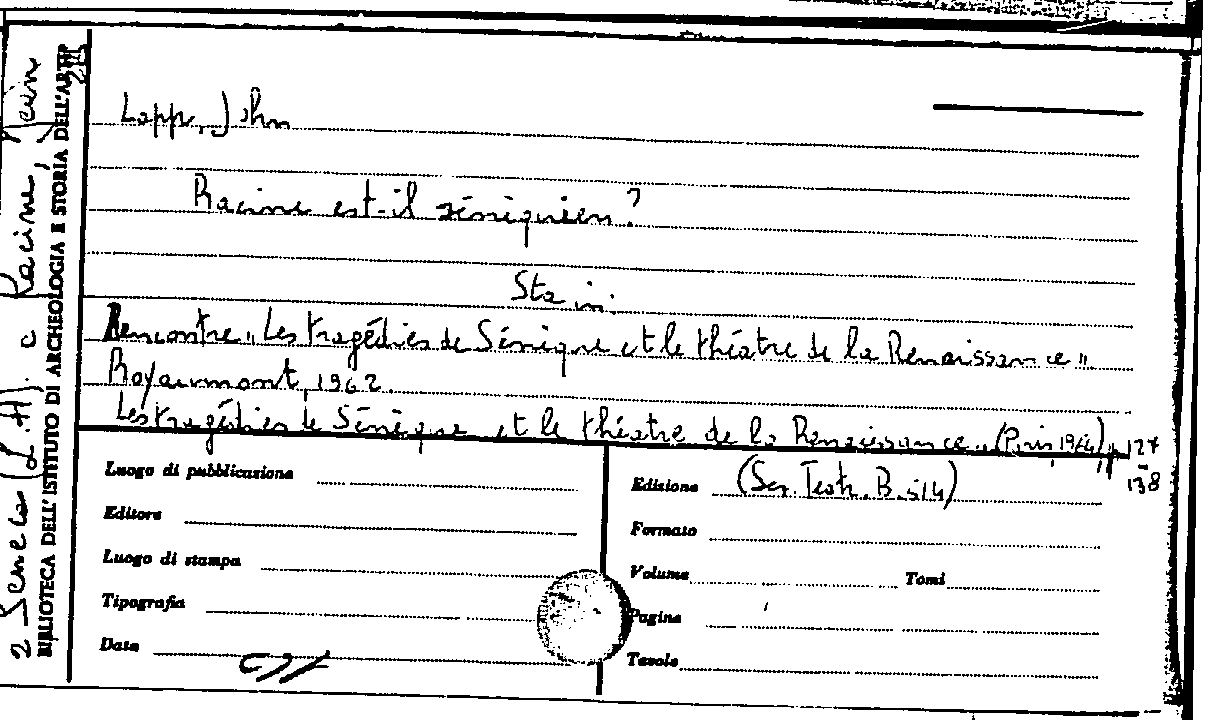 Lapp, John
Racine est-il sénéquien?
Sta in:
Rencontre "Les tragédies de Sénèque et le théatre de la Renaissance"
Royaumont 1962.
Les tragédies de Sénèque et le théatre de la Renaissance, (Paris 1964), pp 127
-
138
Luogo di pubblicazione
Editore
Luogo di stampa
Tipografia
Data
Edizione (Ser. Teatr. B. 514)
Formato
Volume Tomi
Pagine
Tavole
2 Seneca (L. A). a Racine, Jean
BIBLIOTECA DELL'ISTITUTO DI ARCHEOLOGIA E STORIA DELL'ARTE